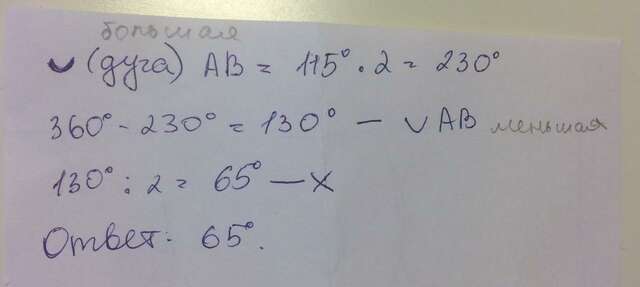 большая
◡ (дуга) AB = 115° · 2 = 230°
360° - 230° = 130° — ◡ AB меньшая
130° : 2 = 65° — x
Ответ: 65°.